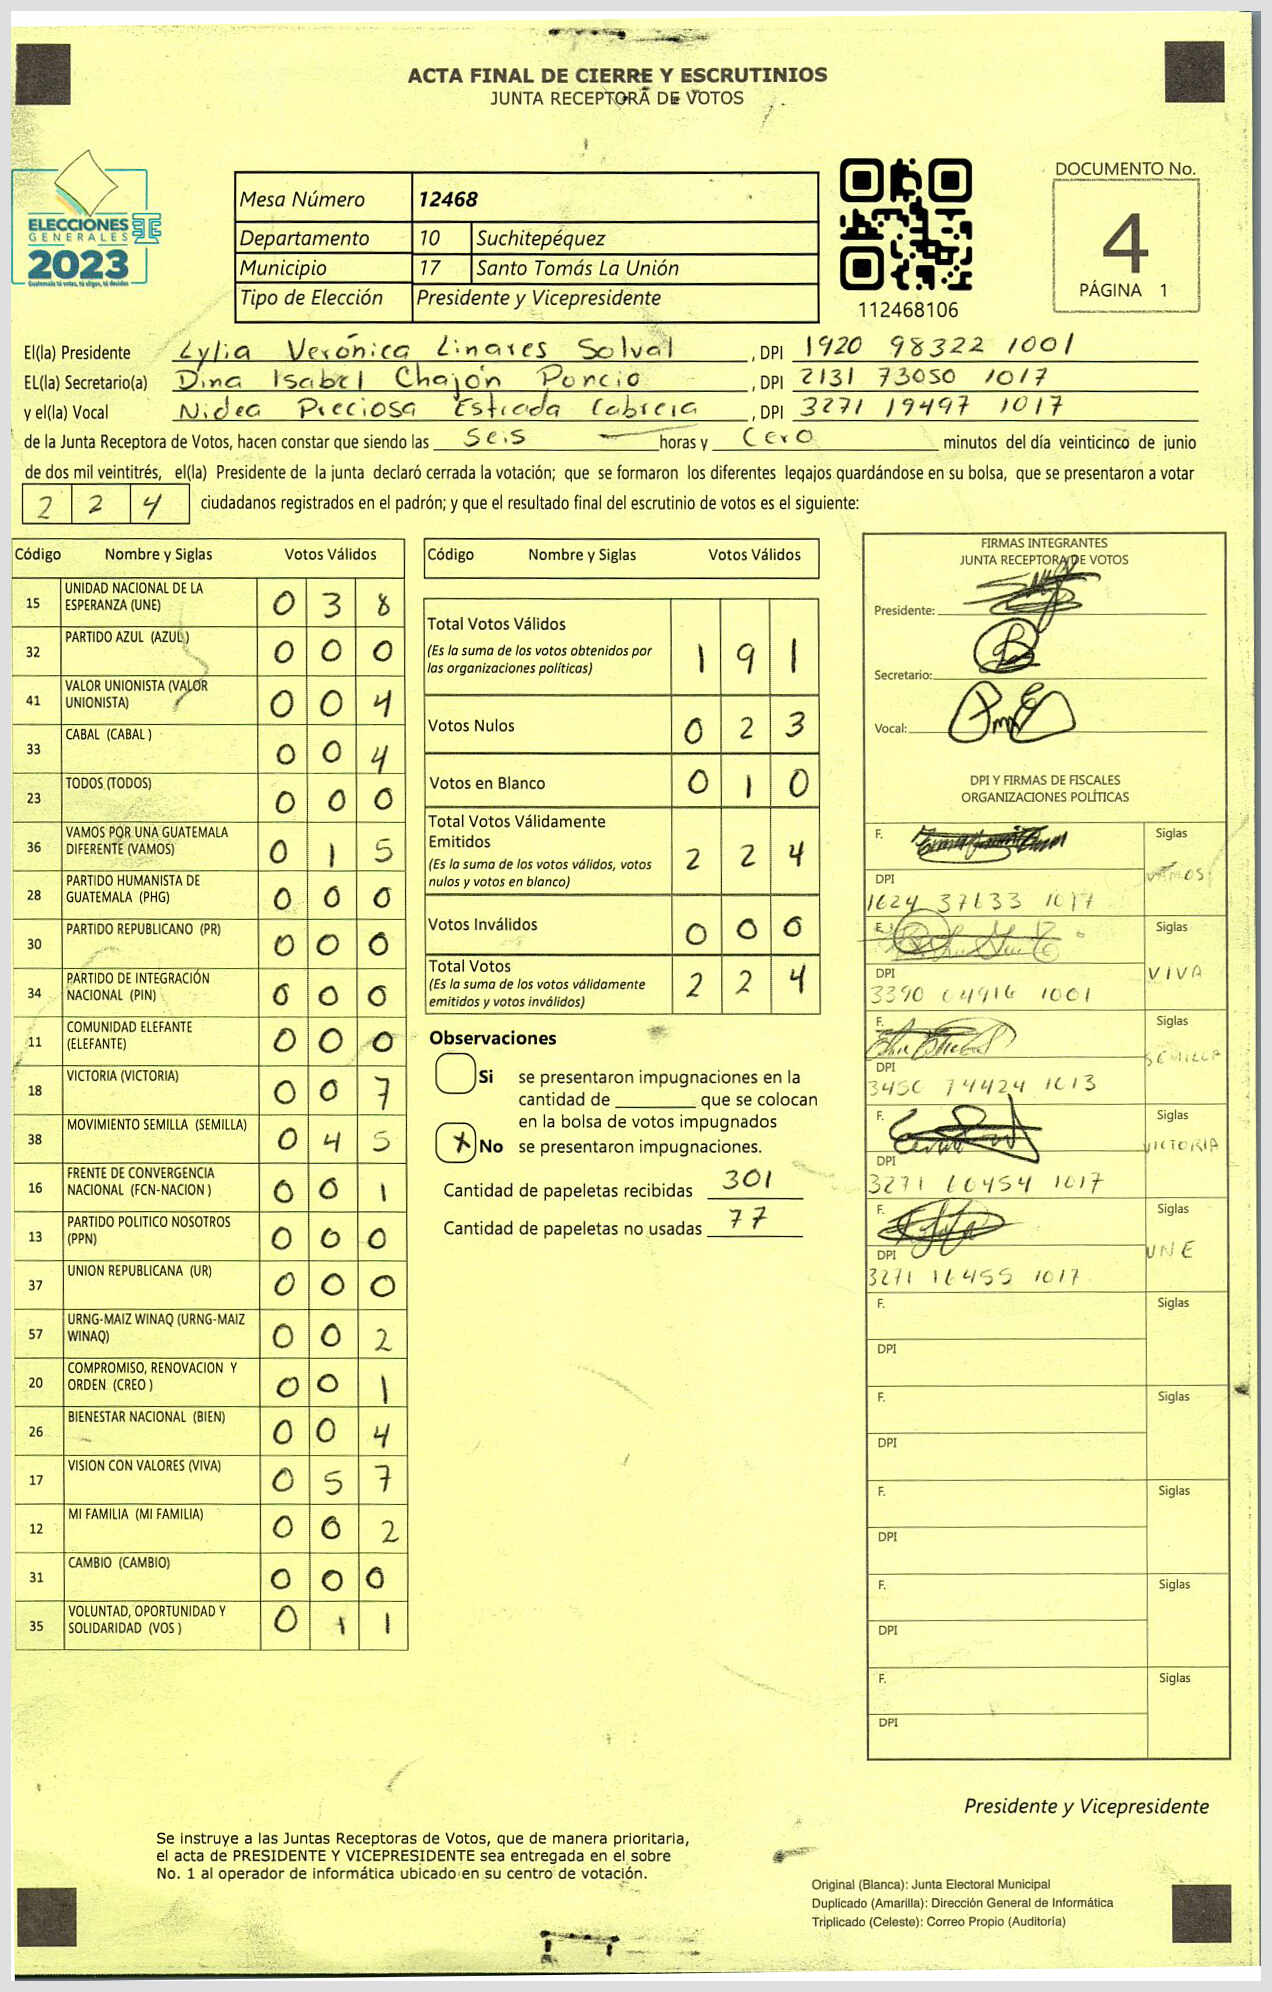 ACTA FINAL DE CIERRE Y ESCRUTINIOS
JUNTA RECEPTORA DE VOTOS
ELECCIONES
GENERALES
2023
Guatemala tú votas, tú eliges, tú decides
Mesa Número 12468
Departamento 10 Suchitepéquez
Municipio 17 Santo Tomás La Unión
Tipo de Elección Presidente y Vicepresidente
112468106
DOCUMENTO No.
4
PÁGINA 1
El(la) Presidente Lylia Verónica Linares Solval, DPI 1920 98322 1001
EL(la) Secretario(a) Dina Isabel Chajón Poncio, DPI 2131 73050 1017
y el(la) Vocal Nidea Preciosa Estrada Cabrera, DPI 3271 19497 1017
de la Junta Receptora de Votos, hacen constar que siendo las seis horas y cero minutos del día veinticinco de junio
de dos mil veintitrés, el(la) Presidente de la junta declaró cerrada la votación; que se formaron los diferentes legajos guardándose en su bolsa, que se presentaron a votar
224 ciudadanos registrados en el padrón; y que el resultado final del escrutinio de votos es el siguiente:
Código Nombre y Siglas Votos Válidos
15 UNIDAD NACIONAL DE LA ESPERANZA (UNE) 038
32 PARTIDO AZUL (AZUL) 000
41 VALOR UNIONISTA (VALOR UNIONISTA) 004
33 CABAL (CABAL ) 004
23 TODOS (TODOS) 000
36 VAMOS POR UNA GUATEMALA DIFERENTE (VAMOS) 015
28 PARTIDO HUMANISTA DE GUATEMALA (PHG) 000
30 PARTIDO REPUBLICANO (PR) 000
34 PARTIDO DE INTEGRACIÓN NACIONAL (PIN) 000
11 COMUNIDAD ELEFANTE (ELEFANTE) 000
18 VICTORIA (VICTORIA) 007
38 MOVIMIENTO SEMILLA (SEMILLA) 045
16 FRENTE DE CONVERGENCIA NACIONAL (FCN-NACION ) 001
13 PARTIDO POLITICO NOSOTROS (PPN) 000
37 UNION REPUBLICANA (UR) 000
57 URNG-MAIZ WINAQ (URNG-MAIZ WINAQ) 002
20 COMPROMISO, RENOVACION Y ORDEN (CREO ) 001
26 BIENESTAR NACIONAL (BIEN) 004
17 VISION CON VALORES (VIVA) 057
12 MI FAMILIA (MI FAMILIA) 002
31 CAMBIO (CAMBIO) 000
35 VOLUNTAD, OPORTUNIDAD Y SOLIDARIDAD (VOS ) 011
Código Nombre y Siglas Votos Válidos
Total Votos Válidos 191
(Es la suma de los votos obtenidos por
las organizaciones políticas)
Votos Nulos 023
Votos en Blanco 010
Total Votos Válidamente
Emitidos 224
(Es la suma de los votos válidos, votos
nulos y votos en blanco)
Votos Inválidos 000
Total Votos 224
(Es la suma de los votos válidamente
emitidos y votos inválidos)
Observaciones
Si se presentaron impugnaciones en la
cantidad de que se colocan
en la bolsa de votos impugnados
x No se presentaron impugnaciones.
Cantidad de papeletas recibidas 301
Cantidad de papeletas no usadas 77
FIRMAS INTEGRANTES
JUNTA RECEPTORA DE VOTOS
Presidente:
Secretario:
Vocal:
DPI Y FIRMAS DE FISCALES
ORGANIZACIONES POLÍTICAS
F. Siglas
VAMOS
DPI
1624 37633 1017
F. Siglas
VIVA
DPI
3390 04916 1001
F. Siglas
SEMILLA
DPI
3450 74424 1013
F. Siglas
VICTORIA
DPI
3271 16454 1017
F. Siglas
UNE
DPI
3271 16455 1017
F. Siglas
DPI
F. Siglas
DPI
F. Siglas
DPI
F. Siglas
DPI
F. Siglas
DPI
Presidente y Vicepresidente
Se instruye a las Juntas Receptoras de Votos, que de manera prioritaria,
el acta de PRESIDENTE Y VICEPRESIDENTE sea entregada en el sobre
No. 1 al operador de informática ubicado en su centro de votación.
Original (Blanca): Junta Electoral Municipal
Duplicado (Amarilla): Dirección General de Informática
Triplicado (Celeste): Correo Propio (Auditoría)